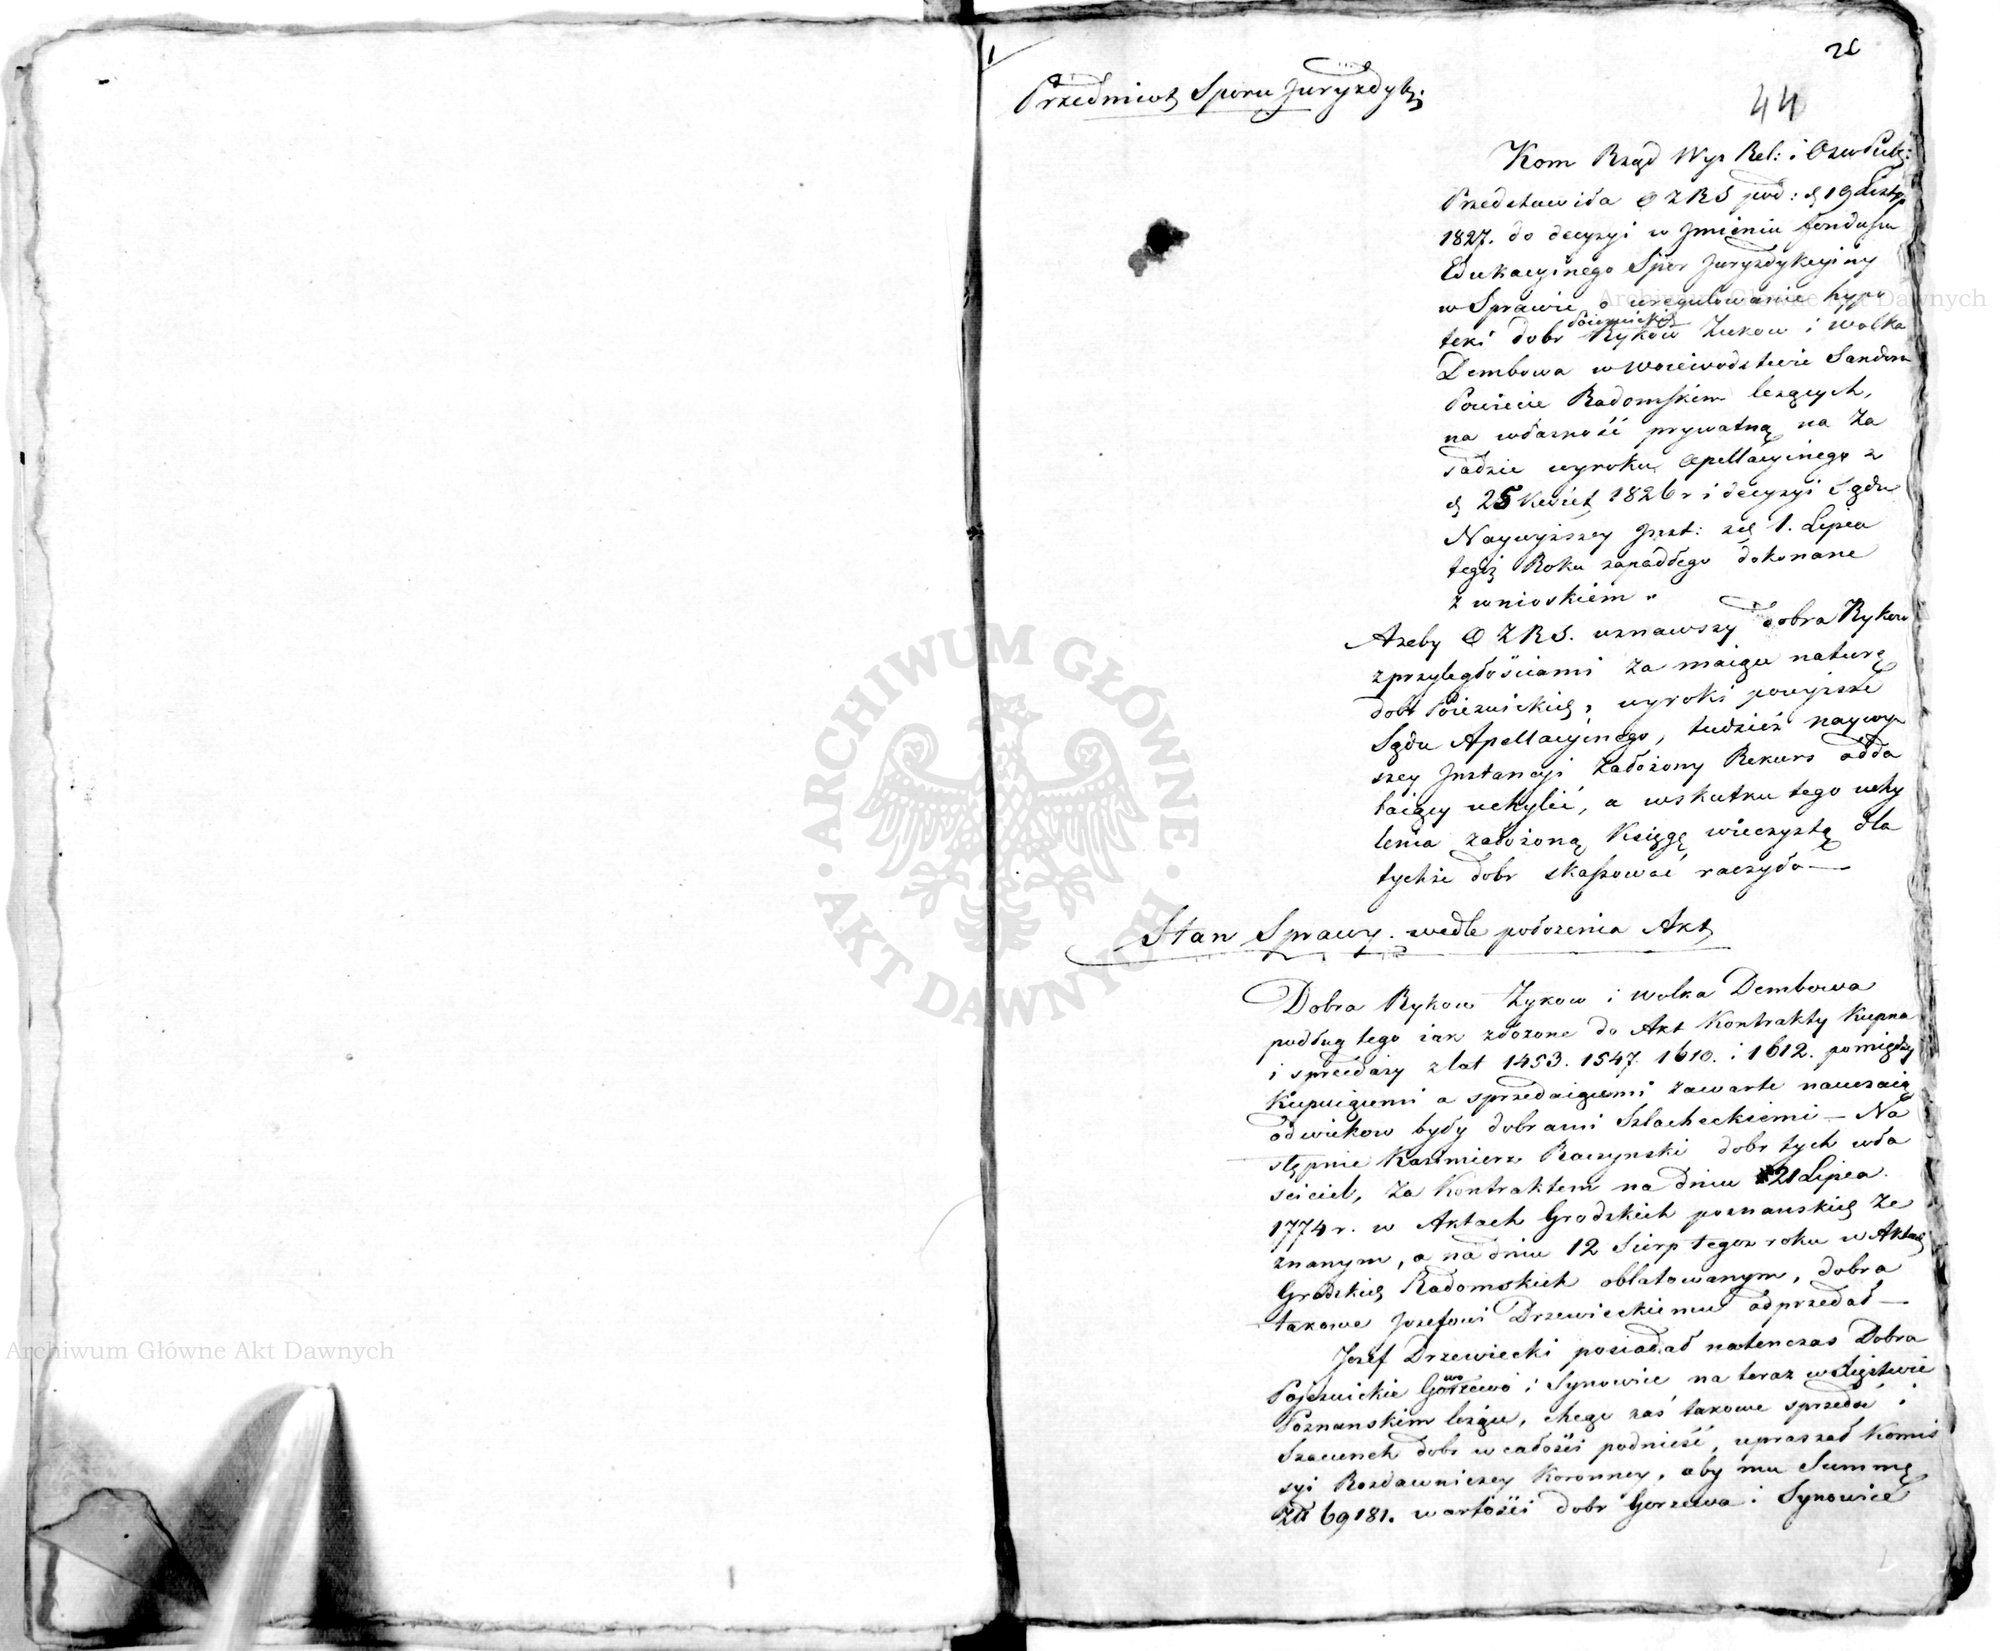 1
26
44
Przedmiot Sporu Juryzdyk:
Kom Rząd Wyz Rel: i Oświ Pub:
Przedstawiła O Z R S pod: d 19 Listop
1827. do decyzyi w Jmieniu funduszu
Edukacyinego Spor Juryzdykcyiny
w Sprawie o uregulowanie hypo
teki dobr Rykow Zukow i Wolka
Pojezuickich
Dembowa w Woiewodztwie Sandom
Powiecie Radomskim leżących,
na własność prywatną na Za
sadzie wyroku Apellacyinego z
d 25 Kwiet 1826 r i decyzyi Sądu
Naywyższey Inst: zd 1. Lipca
tegoż Roku zapadłego dokonane
z wnioskiem "
Azeby O Z R S. uznawszy dobra Rykow
z przyległościami za maiące naturę
dobr Poiezuickich, wyroki powyższe
Sądu Apellacyinego, tudzież naywy
szey Instancyi założony Rekurs odda
laiący uchylić, a w skutku tego uchy
lenia założoną Księgę wieczystą dla
tychże dobr skassować raczyła —
Stan Sprawy. wedle położenia Akt
Dobra Rykow Zykow i Wolka Dembowa
podług tego iak złożone do Akt Kontrakty Kupna
i sprzedaży z lat 1453. 1547. 1610. i 1612. pomiędzy
Kupuiącemi a sprzedaiącemi zawarte nauczaią
od wiekow były dobrami Szlacheckiemi — Na
stępnie Kazimierz Raczynski dobr tych wła
ściciel, za Kontraktem na dniu 21 Lipca
1774 r. w Aktach Grodzkich poznanskich ze
znanym, a na dniu 12 Sierp tegoż roku w Aktach
Grodzkich Radomskich oblatowanym, dobra
takowe Jozefowi Drzewieckiemu odprzedał —
Jozef Drzewiecki posiadał natenczas Dobra
Pojezuickie Gorzewo i Synowice na teraz w Xięstwie
wo
Poznanskim leżące, chcąc zaś takowe sprzedać i
Szacunek dobr w całości podnieść, upraszał Komis
syi Rozdawniczey Koronney, aby mu Summę
Złt 69181. wartości dobr Gorzewa i Synowice
Archiwum Główne Akt Dawnych
Archiwum Główne Akt Dawnych
ARCHIWUM GŁÓWNE · AKT DAWNYCH ·